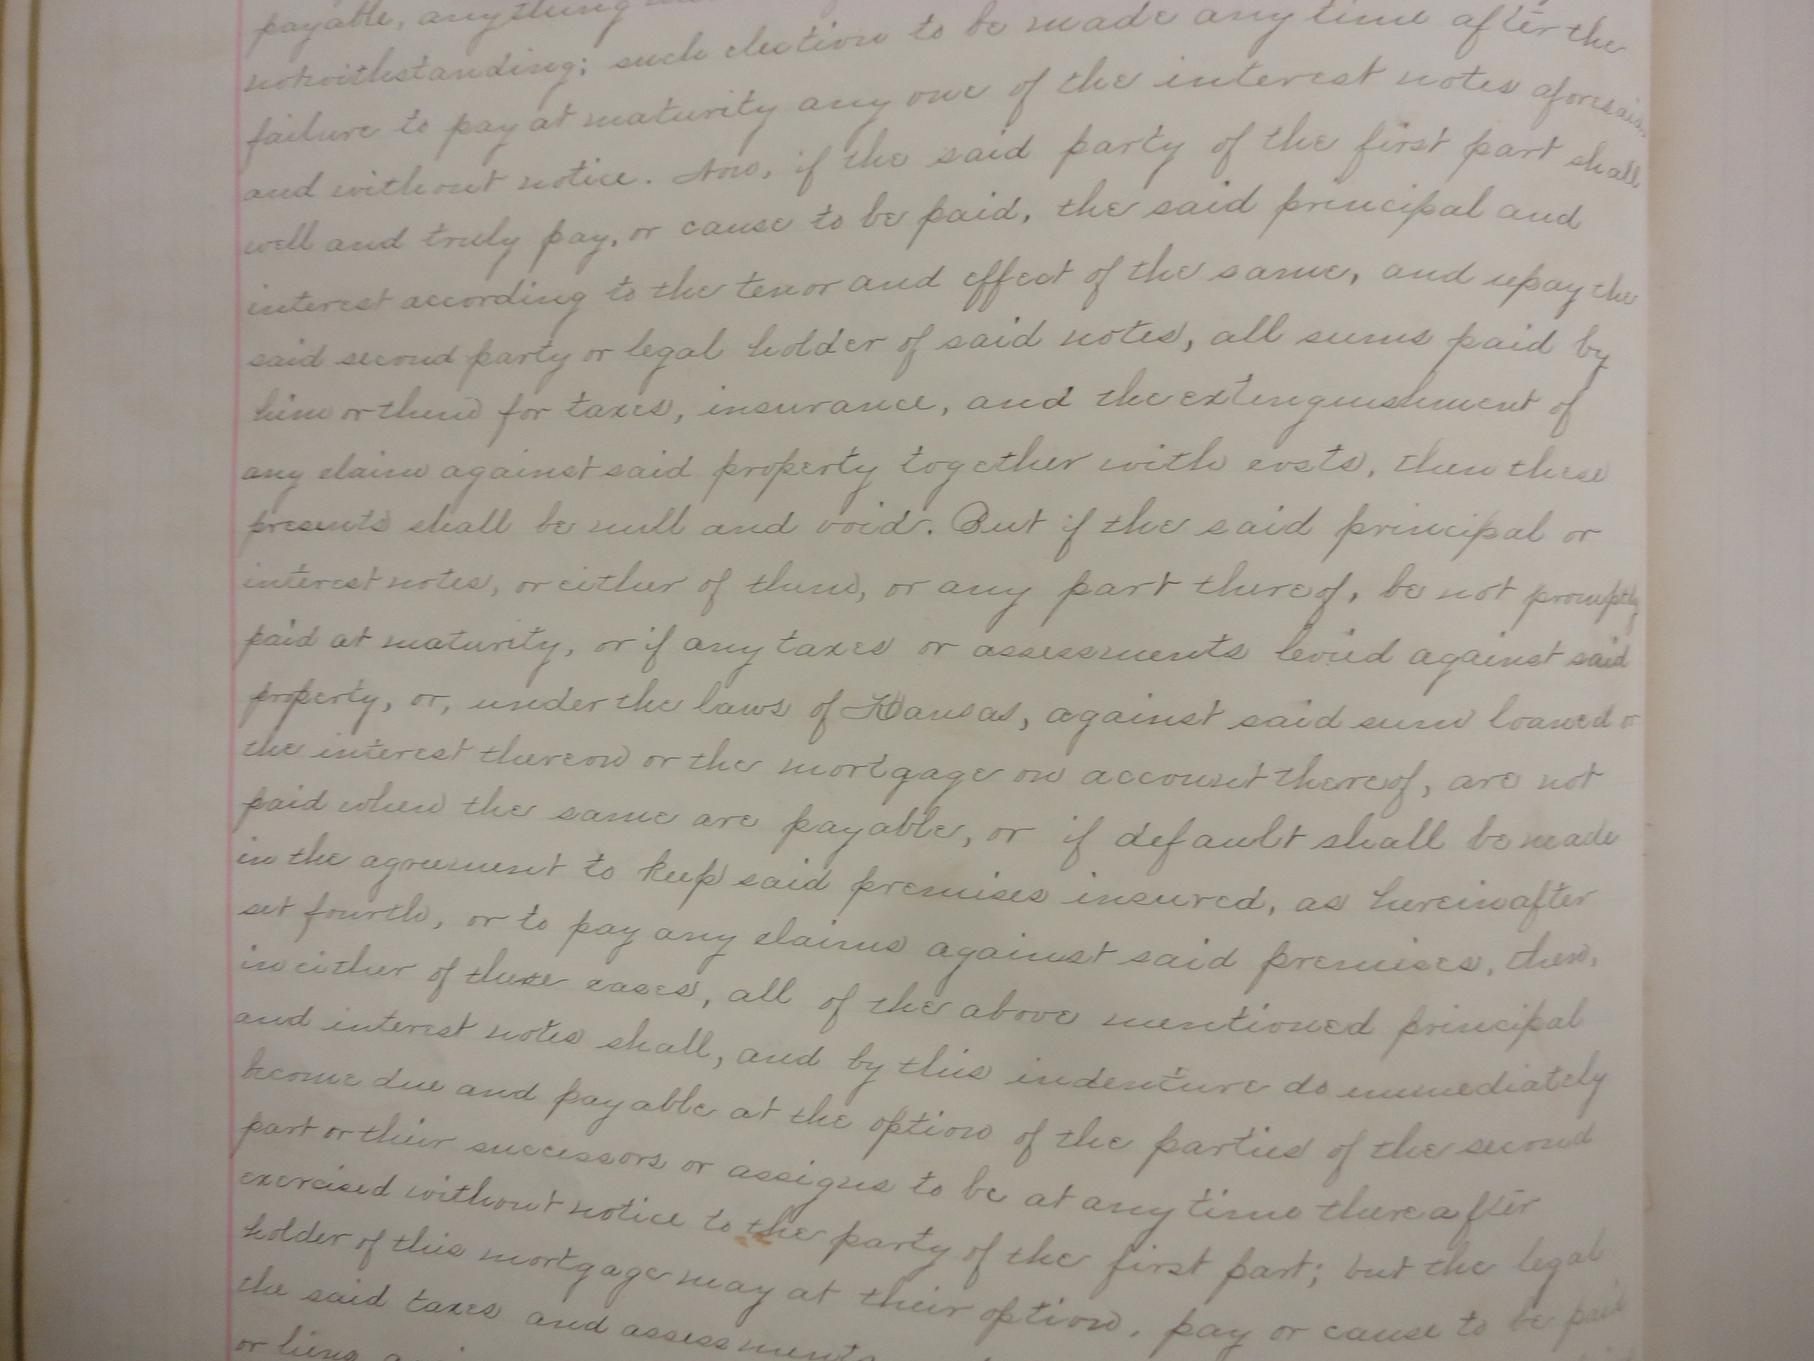 payable, anything
notwithstanding; such election to be made any time after the
failure to pay at maturity any one of the interest notes aforesaid
and without notice. Now, if the said party of the first part shall
well and truly pay, or cause to be paid, the said principal and
interest according to the tenor and effect of the same, and repay the
said second party or legal holder of said notes, all sums paid by
him or them for taxes, insurance, and the extinguishment of
any claim against said property together with costs, then these
presents shall be null and void. But if the said principal or
interest notes, or either of them, or any part thereof, be not promptly
paid at maturity, or if any taxes or assessments levied against said
property, or, under the laws of Kansas, against said sum loaned or
the interest thereon or the mortgage on account thereof, are not
paid when the same are payable, or if default shall be made
in the agreement to keep said premises insured, as hereinafter
set fourth, or to pay any claims against said premises, then,
in either of these cases, all of the above mentioned principal
and interest notes shall, and by this indenture do immediately
become due and payable at the option of the parties of the second
part or their successors or assigns to be at any time thereafter
exercised without notice to the party of the first part; but the legal
holder of this mortgage may at their option, pay or cause to be paid
the said taxes and assessments
or liens